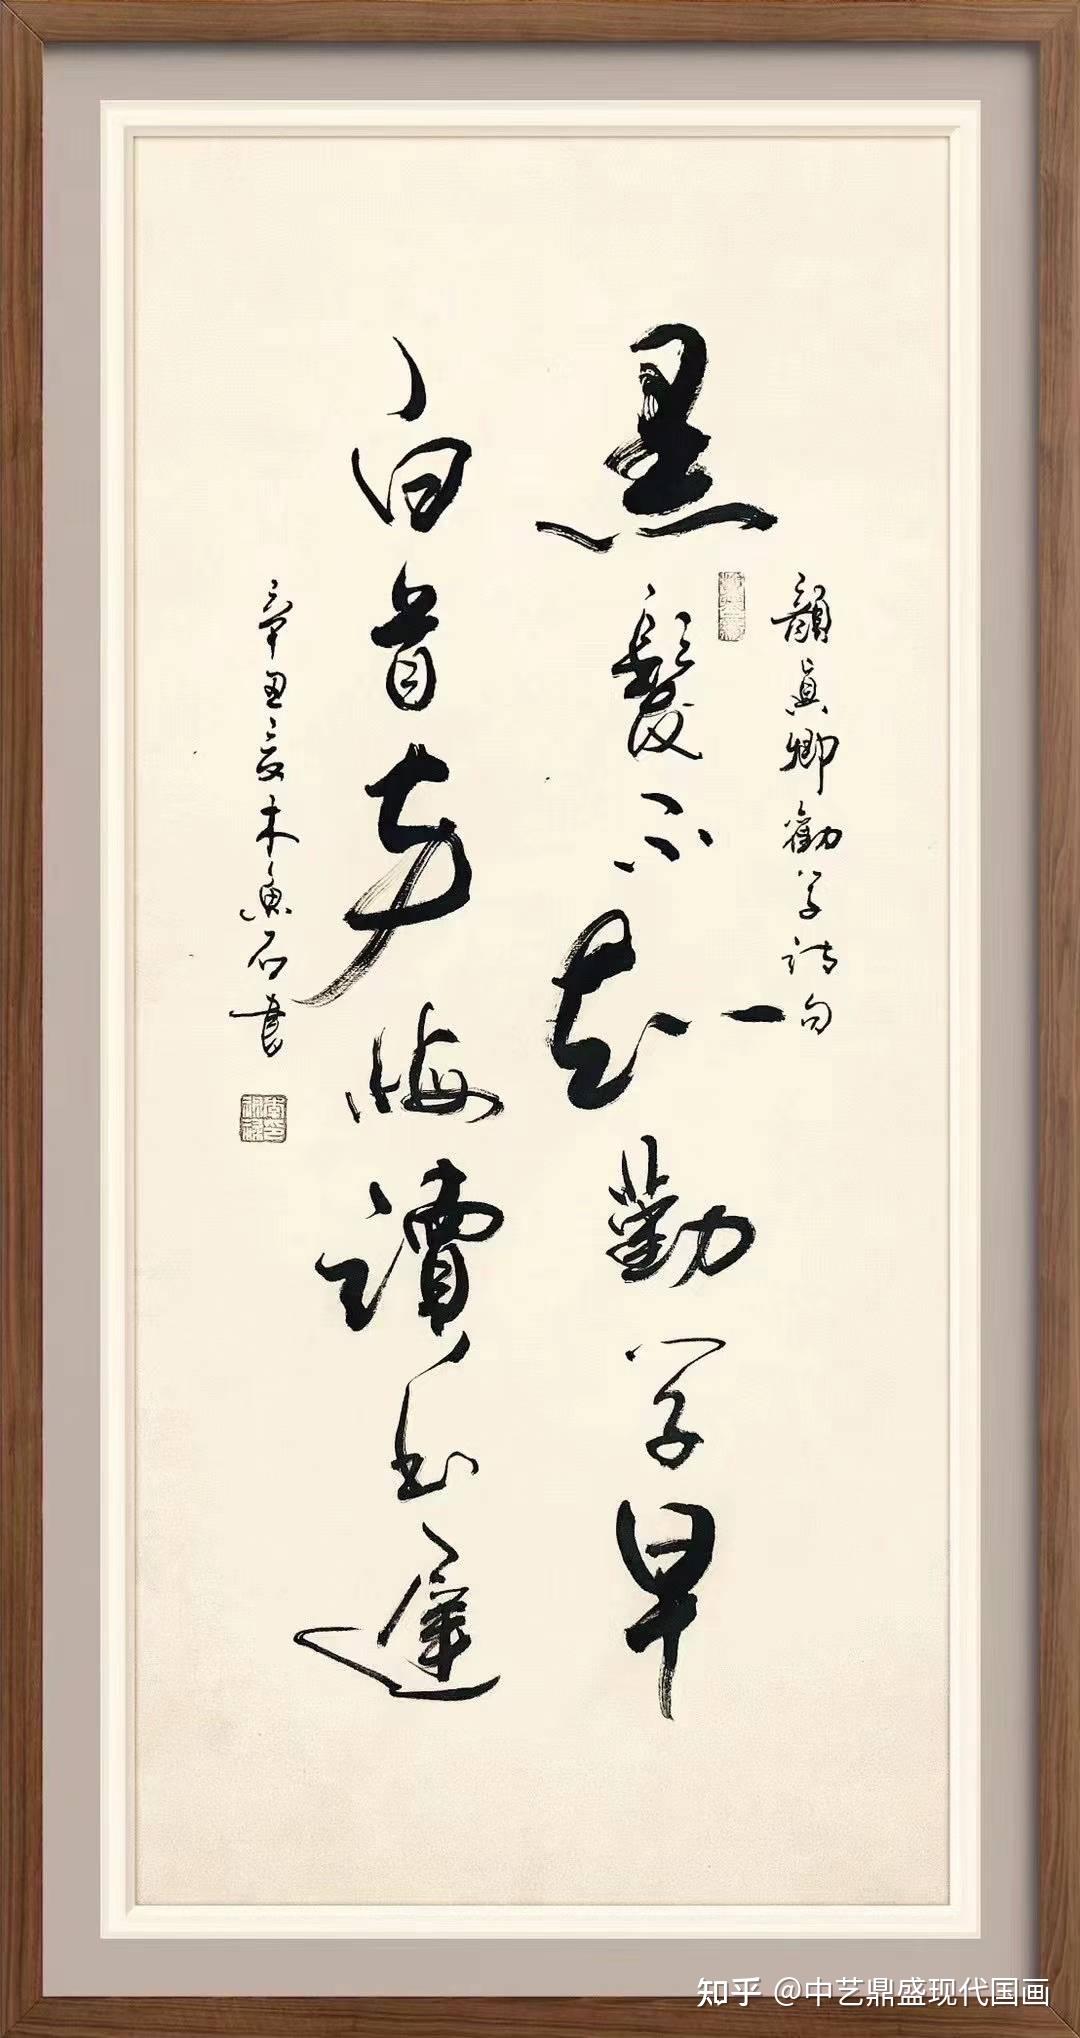 顏真卿勸学詩句
黑髮不知勤学早
白首方悔讀书遲
辛丑夏木魚石書
知乎 @中艺鼎盛现代国画